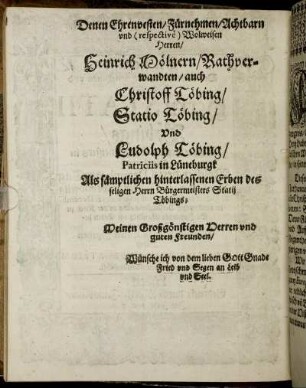 Denen Ehrenvesten/ Fürnehmen/ Achtbarn
vnd (respectivè) Wolweisen
Herren/
Heinrich Mölnern/ Rathver-
wandten/ auch
Christoff Töbing/
Statio Töbing/
Vnd
Ludolph Töbing/
Patriciis in Lüneburgk
Als sämptlichen hinterlassenen Erben des
seligen Herrn Bürgermeisters Statij
Töbings/
Meinen Großgönstigen Herren vnd
guten Freunden/
Wünsche ich von dem lieben GOtt Gnade
Fried vnd Segen an Leib
vnd Seel.